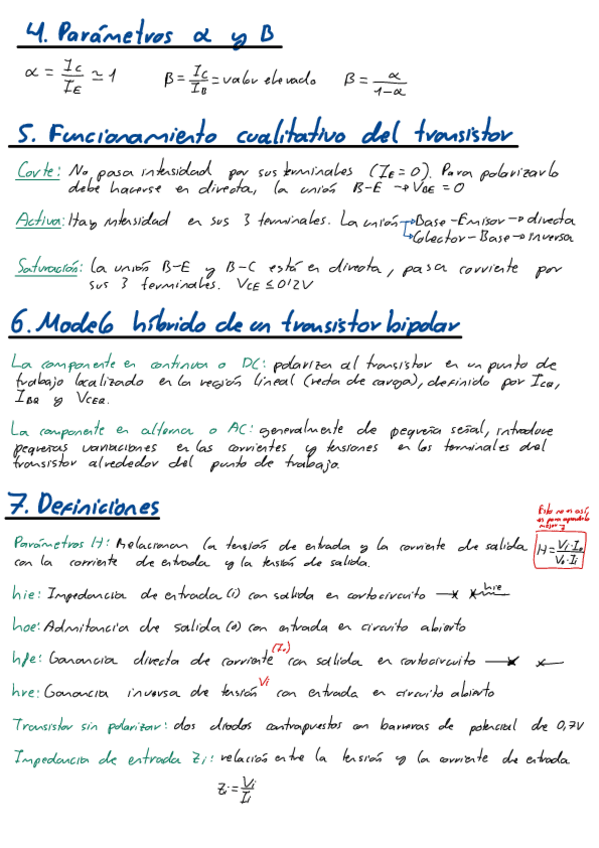 4. Parámetros α y B
α = I_C / I_E ≃ 1   B = I_C / I_B = valor elevado   B = α / 1-α
5. Funcionamiento cualitativo del transistor
Corte: No pasa intensidad por sus terminales (I_E = 0). Para polarizarlo
debe hacerse en directa, la unión B-E → V_BE = 0
Activa: Hay intensidad en sus 3 terminales. La unión → Base-Emisor → directa
→ Colector-Base → inversa
Saturación: La unión B-E y B-C está en directa, pasa corriente por
sus 3 terminales. V_CE ≤ 0'2V
6. Modelo híbrido de un transistor bipolar
La componente en continua o DC: polariza al transistor en un punto de
trabajo localizado en la región lineal (recta de carga), definido por I_CQ,
I_BQ y V_CEQ.
La componente en alterna o AC: generalmente de pequeña señal, introduce
pequeñas variaciones en las corrientes y tensiones en los terminales del
transistor alrededor del punto de trabajo.
7. Definiciones
Esto no es así,
es para aprenderlo
mejor y
Parámetros H: Relacionan la tensión de entrada y la corriente de salida
con la corriente de entrada y la tensión de salida.
H = Vi·Io / Vo·Ii
hie: Impedancia de entrada (i) con salida en cortocircuito hie
hoe: Admitancia de salida (o) con entrada en circuito abierto
hfe: Ganancia directa de corriente (Io) con salida en cortocircuito
hre: Ganancia inversa de tensión Vi con entrada en circuito abierto
Transistor sin polarizar: dos diodos contrapuestos con barreras de potencial de 0,7V
Impedancia de entrada Zi: relación entre la tensión y la corriente de entrada
Zi = Vi / Ii